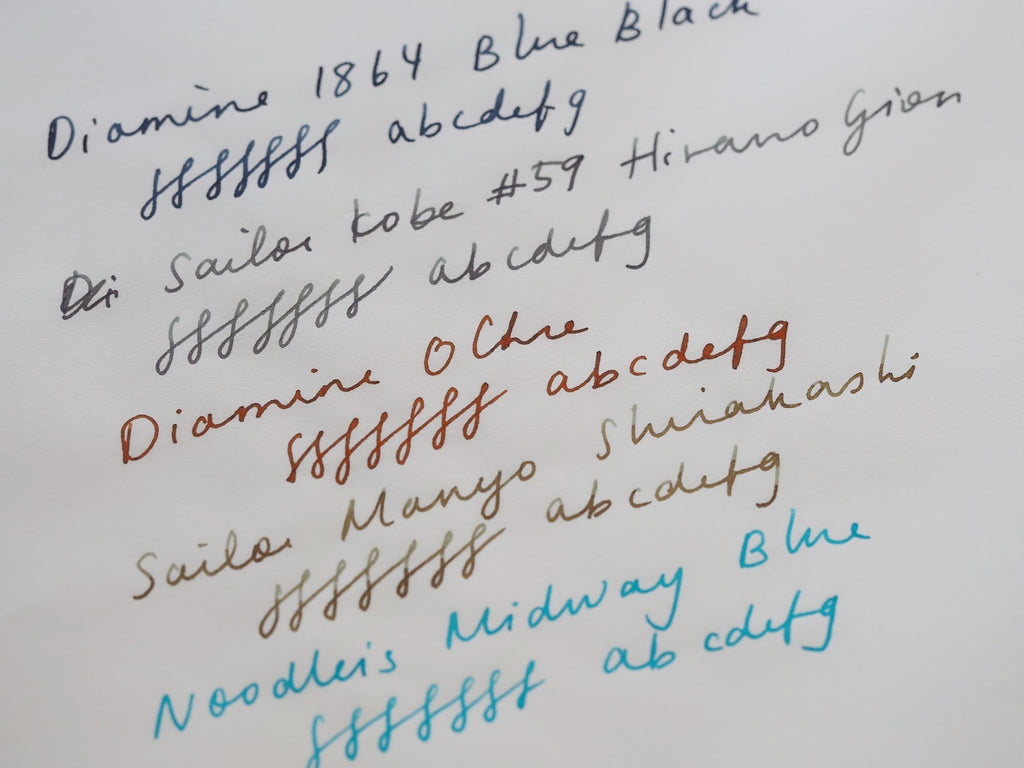 Diamine 1864 Blue Black
fffffff abcdefg
Sailor Kobe #59 Hirano Gion
fffffff abcdefg
Diamine Ochre
fffffff abcdefg
Sailor Manyo Shirakashi
fffffff abcdefg
Noodler's Midway Blue
fffffff abcdefg